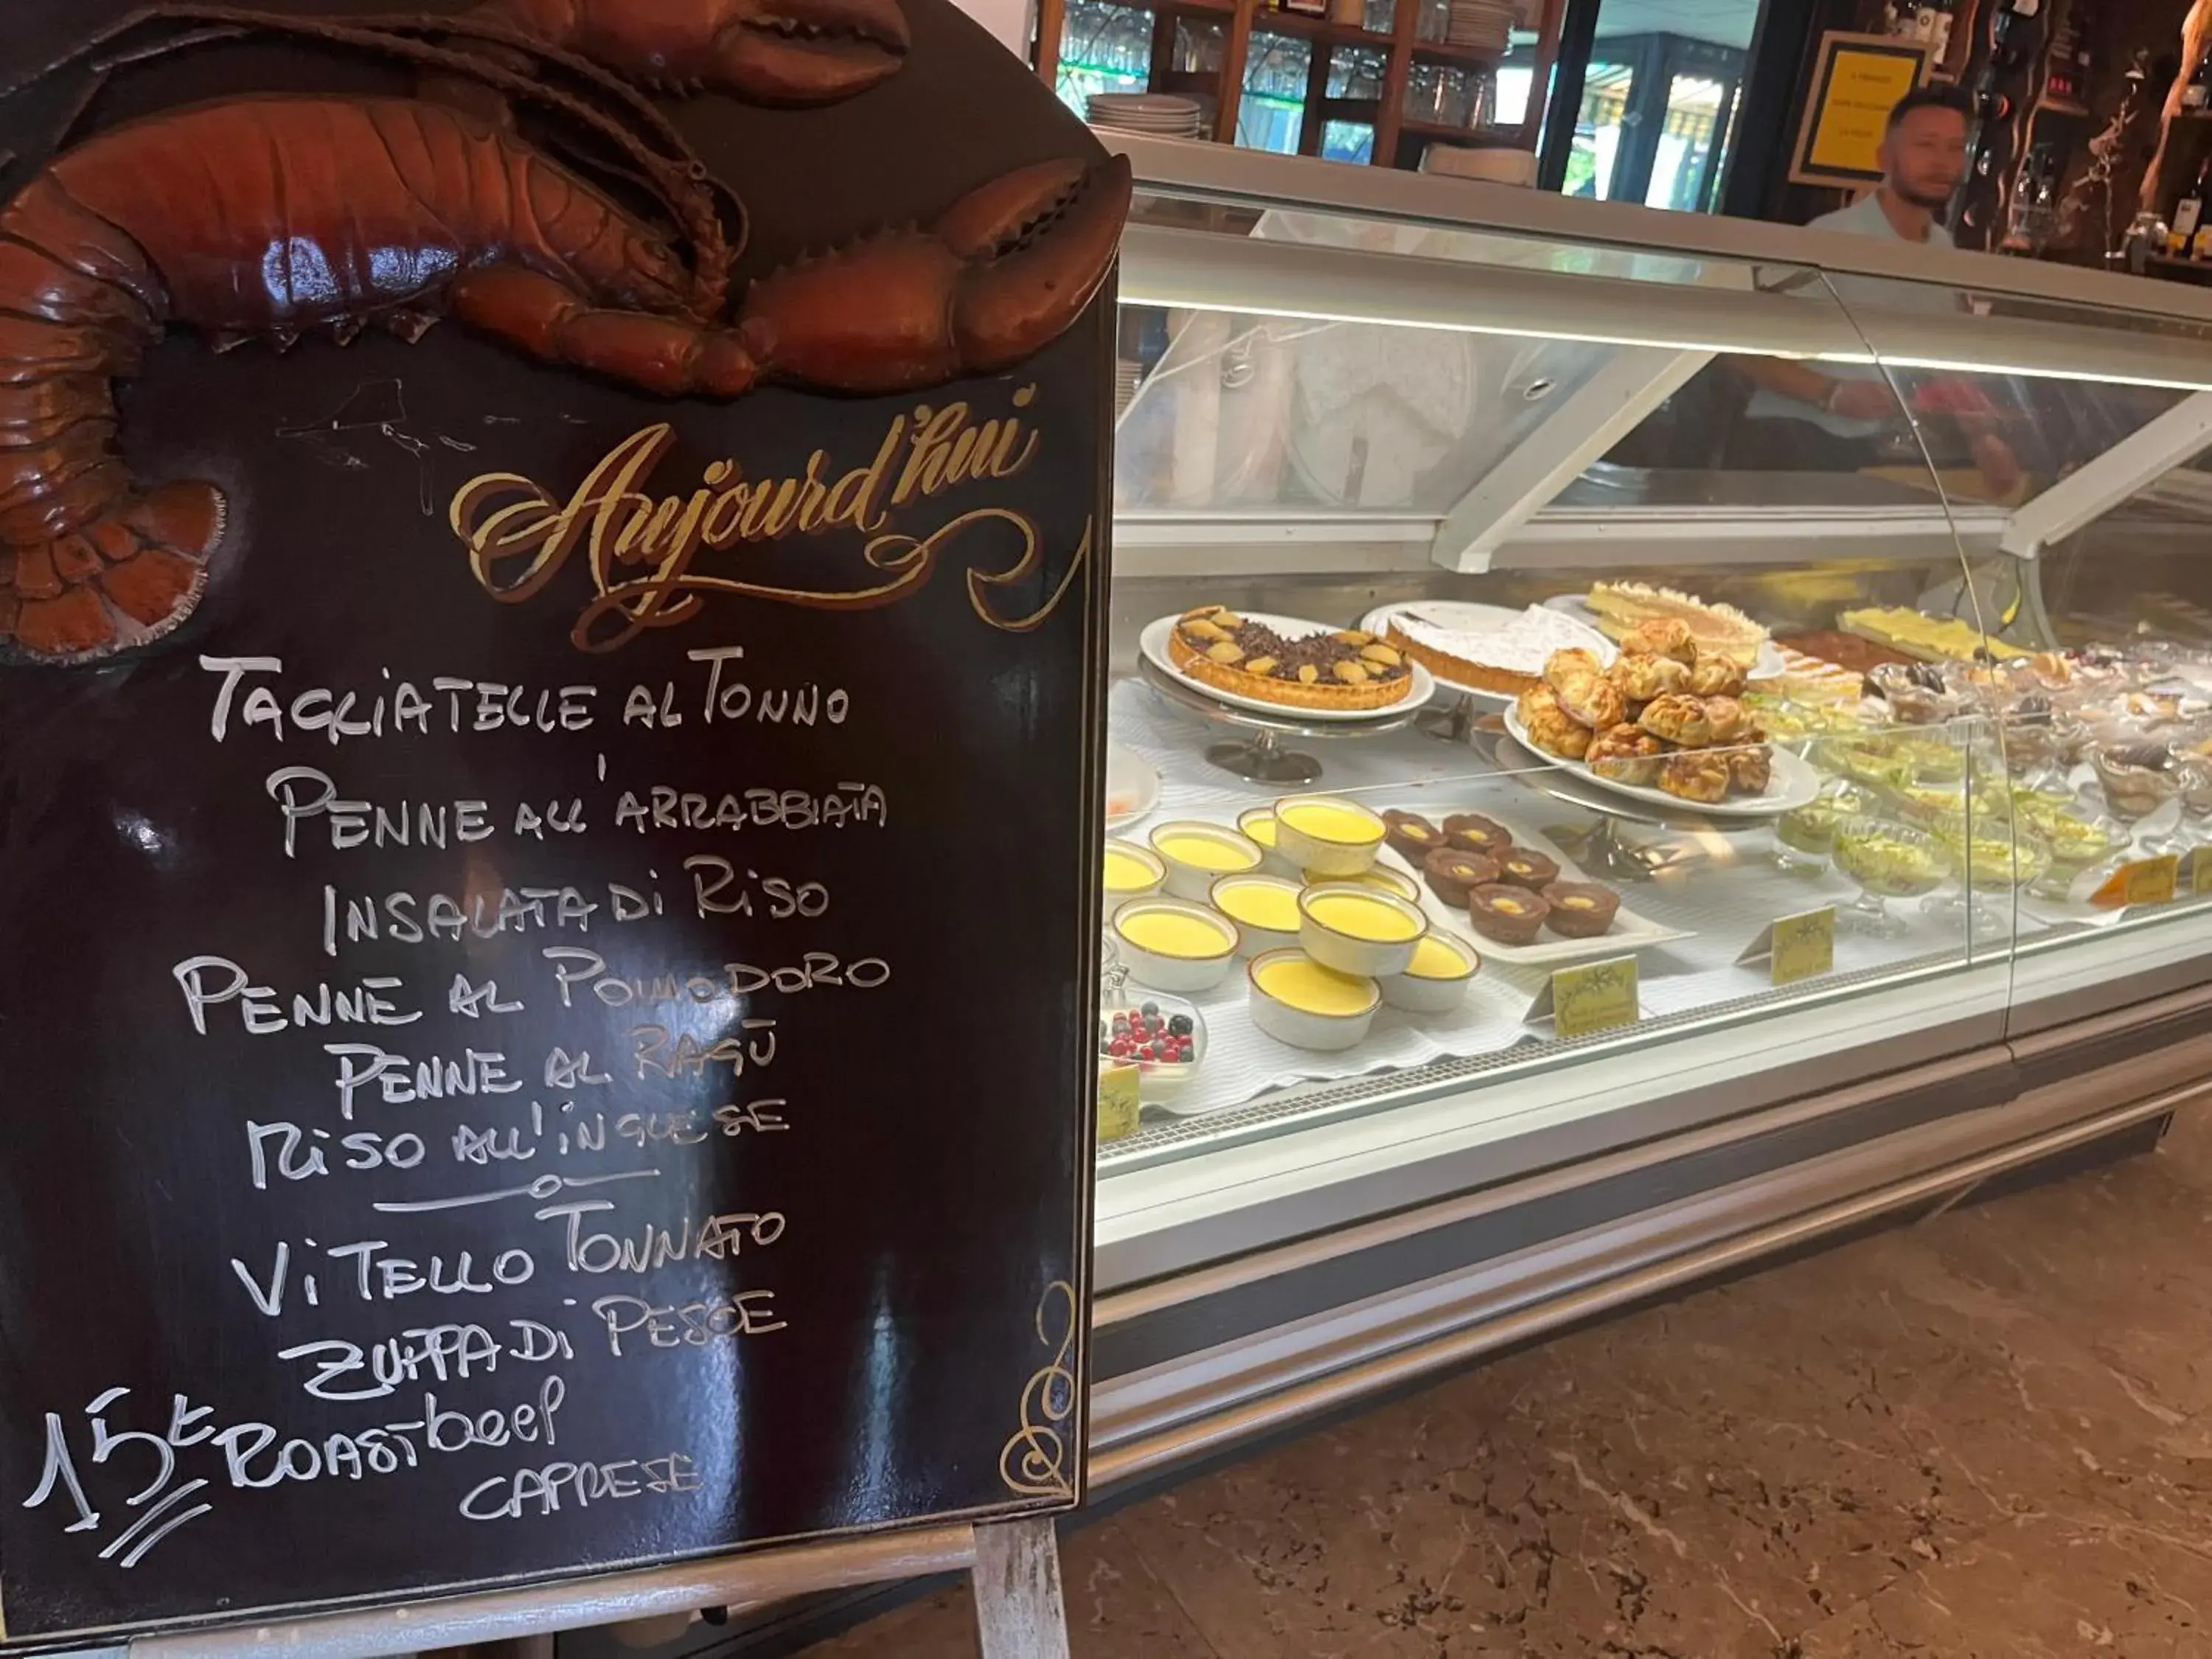 Aujourd'hui
TAGLIATELLE AL TONNO
PENNE ALL'ARRABBIATA
INSALATA Di RiSO
PENNE AL POMODORO
PENNE AL RAGÙ
RiSO ALL'iNGLESE
ViTELLO TONNATO
ZUPPA Di PESCE
15€ ROASTbeef
CAPRESE